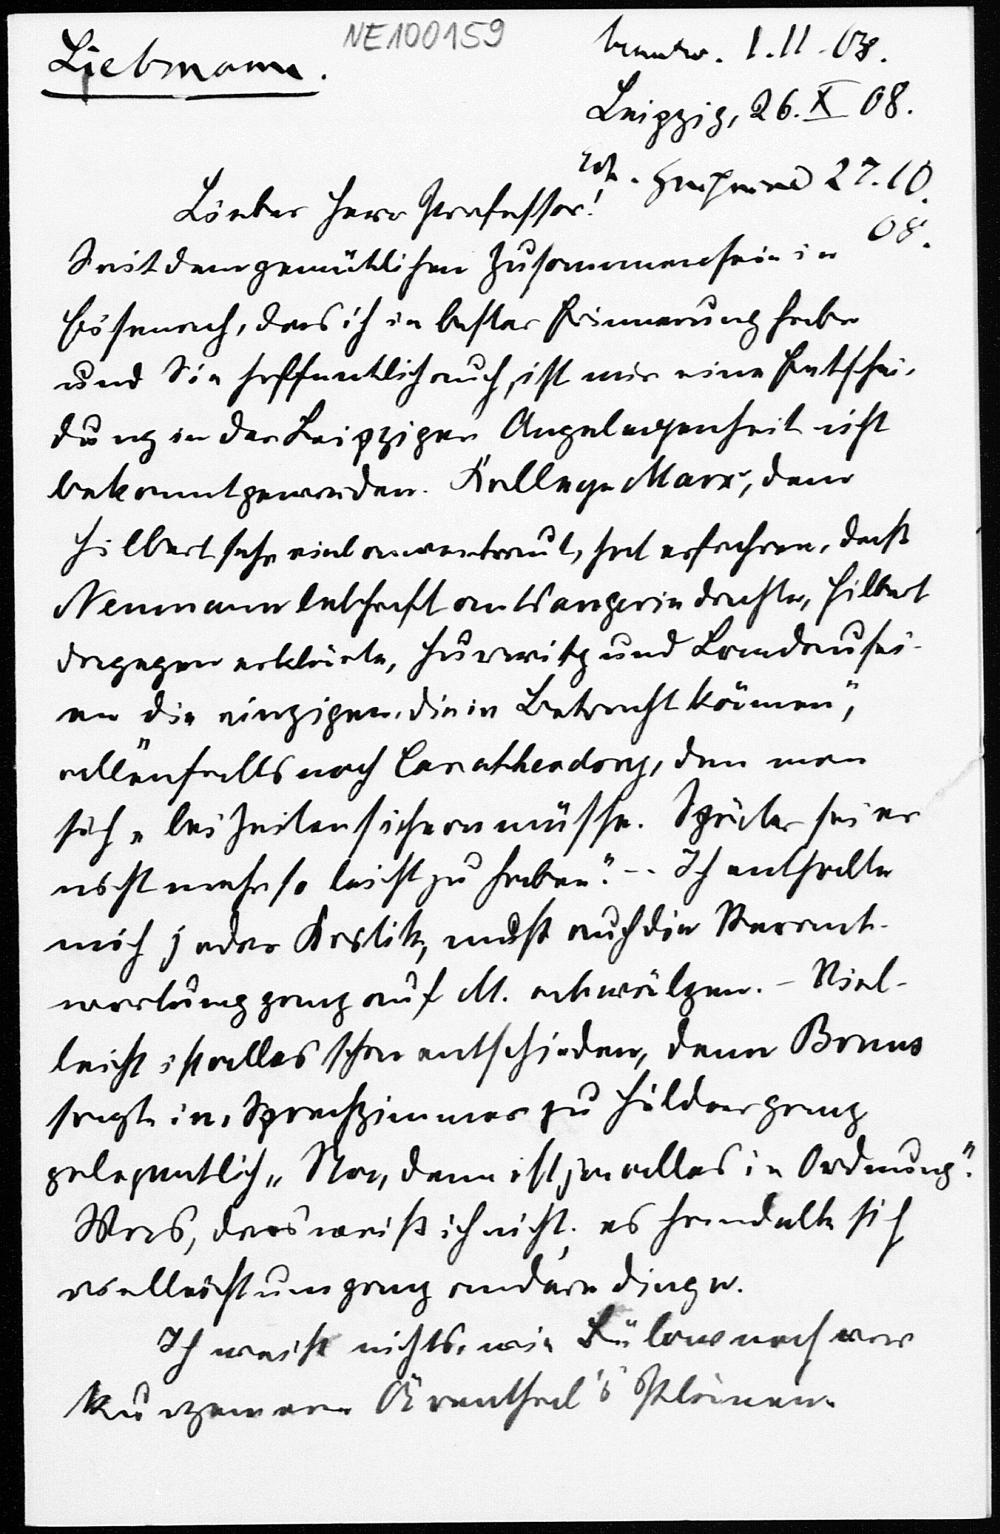 NE100159
Liebmann.
beantw. 1.11.08.
Leipzig, 26.X 08.
27.10.
08.
Lieber Herr Professor!
Seit dem gemütlichen Zusammensein in
Eisenach, das ich in bester Erinnerung habe
und Sie hoffentlich auch, ist mir eine Entschei-
dung in der Leipziger Angelegenheit nicht
bekannt geworden. Kollege Marx, dem
Hilbert sehr viel anvertraut, hat erfahren, dass
Neumann lebhaft an Wangerin dachte, Hilbert
dagegen erklärte, Hurwitz und Landau sei-
en die einzigen, die in Betracht kämen",
allenfalls noch Carathéodory, den man
sich „bei Zeiten sichern müsse. Später sei er
nicht mehr so leicht zu haben". -- Ich enthalte
mich jeder Kritik, muss auch die Verant-
wortung ganz auf M. abwälzen. - Viel-
leicht ist alles schon entschieden, denn Bruns
sagte im Sprechzimmer zu Hölder ganz
gelegentlich „Na, dann ist ja alles in Ordnung".
Was, das weiß ich nicht, es handelte sich
vielleicht um ganz andere Dinge.
Ich weiss nichts, wie Bülow nach vor
kurzem von Ährenthal's Plänen.